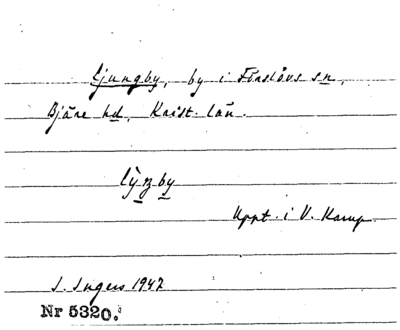 Ljungby, by i Förslövs sn,
Bjäre hd, Krist. län.
Uppt. i V. Karup.
I. Ingers 1947
Nr 5320.